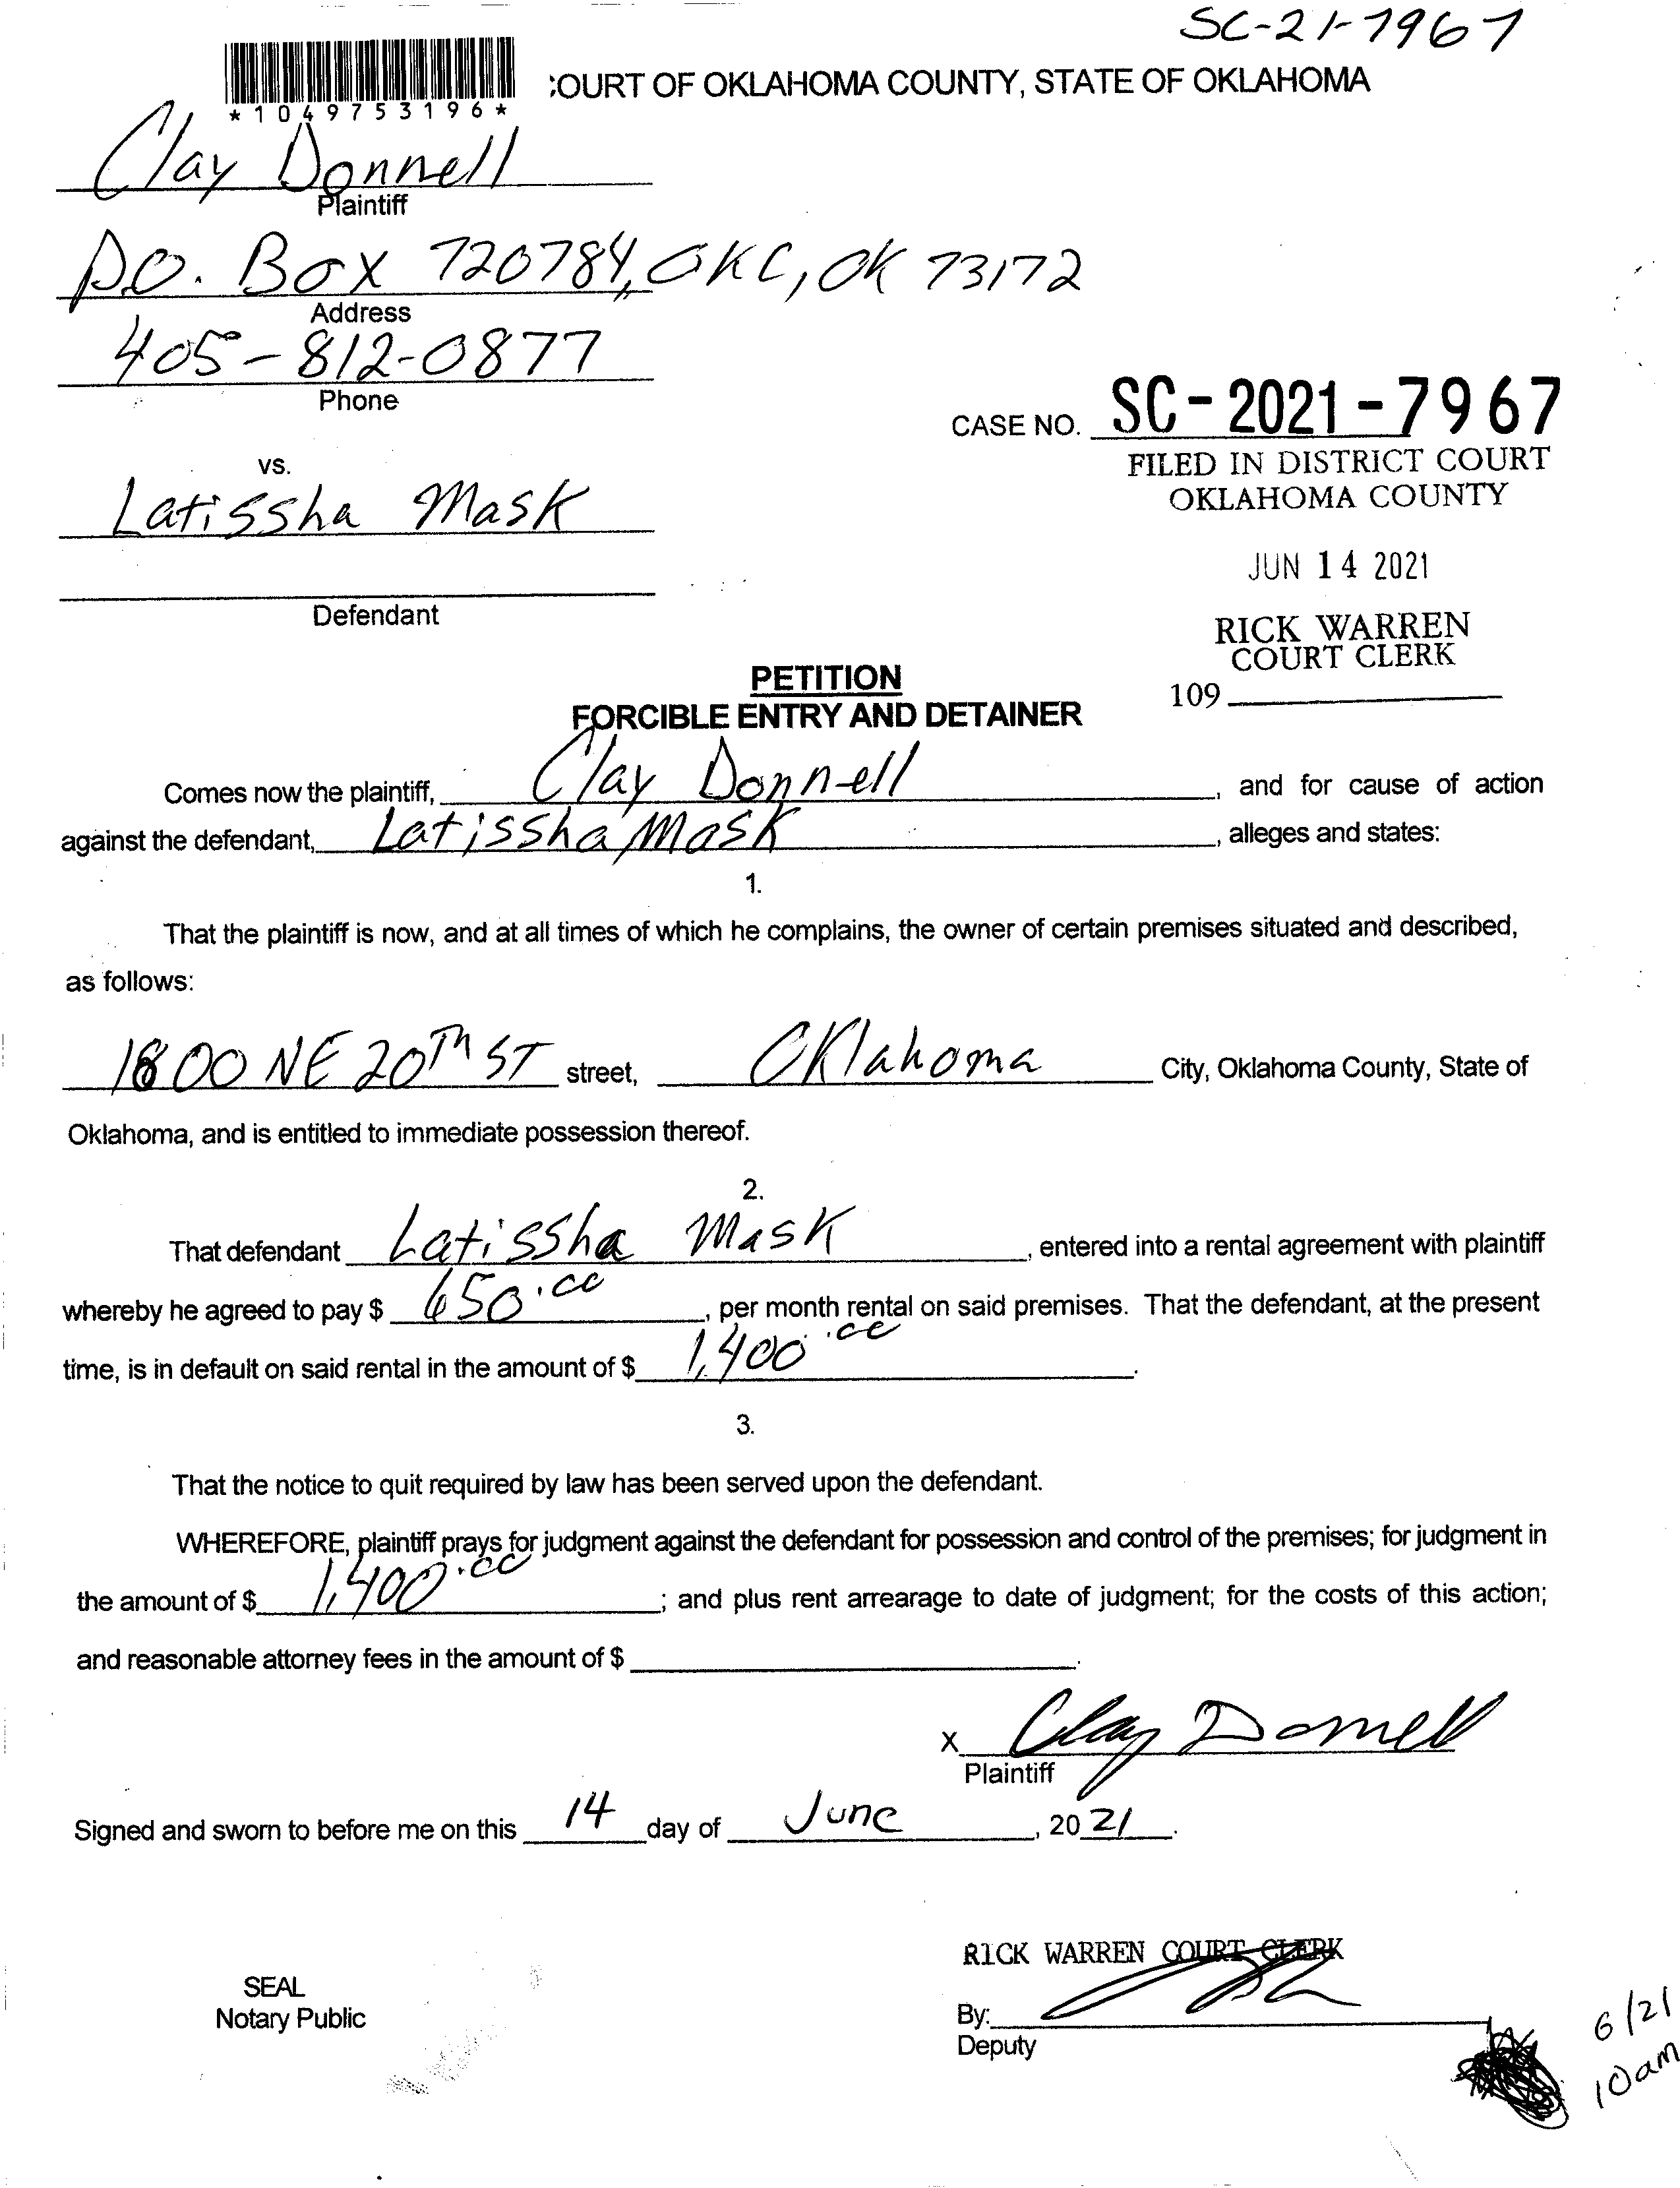 SC-21-7967
*1049753196*
COURT OF OKLAHOMA COUNTY, STATE OF OKLAHOMA
Clay Donnell
Plaintiff
P.O. Box 720784, OKC, OK 73172
Address
405-812-0877
Phone
CASE NO. SC-2021-7967
FILED IN DISTRICT COURT
OKLAHOMA COUNTY
vs.
Latissha Mask
JUN 14 2021
Defendant
RICK WARREN
COURT CLERK
109
PETITION
FORCIBLE ENTRY AND DETAINER
Comes now the plaintiff, Clay Donnell, and for cause of action
against the defendant, Latissha Mask, alleges and states:
1.
That the plaintiff is now, and at all times of which he complains, the owner of certain premises situated and described,
as follows:
1800 NE 20Th ST street, Oklahoma City, Oklahoma County, State of
Oklahoma, and is entitled to immediate possession thereof.
2.
That defendant Latissha Mask, entered into a rental agreement with plaintiff
whereby he agreed to pay $ 650.00, per month rental on said premises. That the defendant, at the present
time, is in default on said rental in the amount of $ 1,400.00.
3.
That the notice to quit required by law has been served upon the defendant.
WHEREFORE, plaintiff prays for judgment against the defendant for possession and control of the premises; for judgment in
the amount of $ 1,400.00; and plus rent arrearage to date of judgment; for the costs of this action;
and reasonable attorney fees in the amount of $ .
X Clay Donnell
Plaintiff
Signed and sworn to before me on this 14 day of June, 20 21.
RICK WARREN COURT CLERK
SEAL
Notary Public
By:
Deputy
6/21
10am